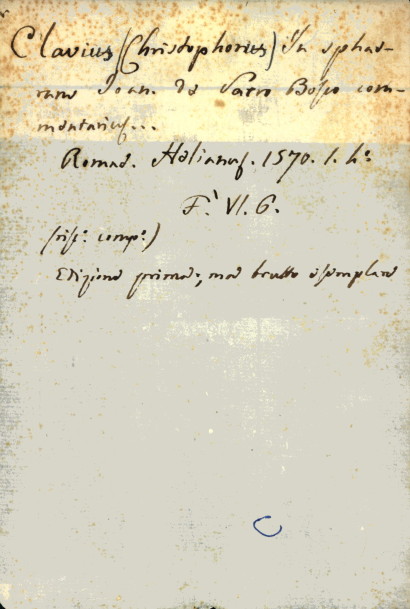 Clavius (Christophorus) In sphae-
ram Joan. de Sacro Bosco com-
mentarius...
Romae. Helianus. 1570. 1. 4.º
F. VI. 6.
comp.º)
Edizione prima; ma brutto esemplare